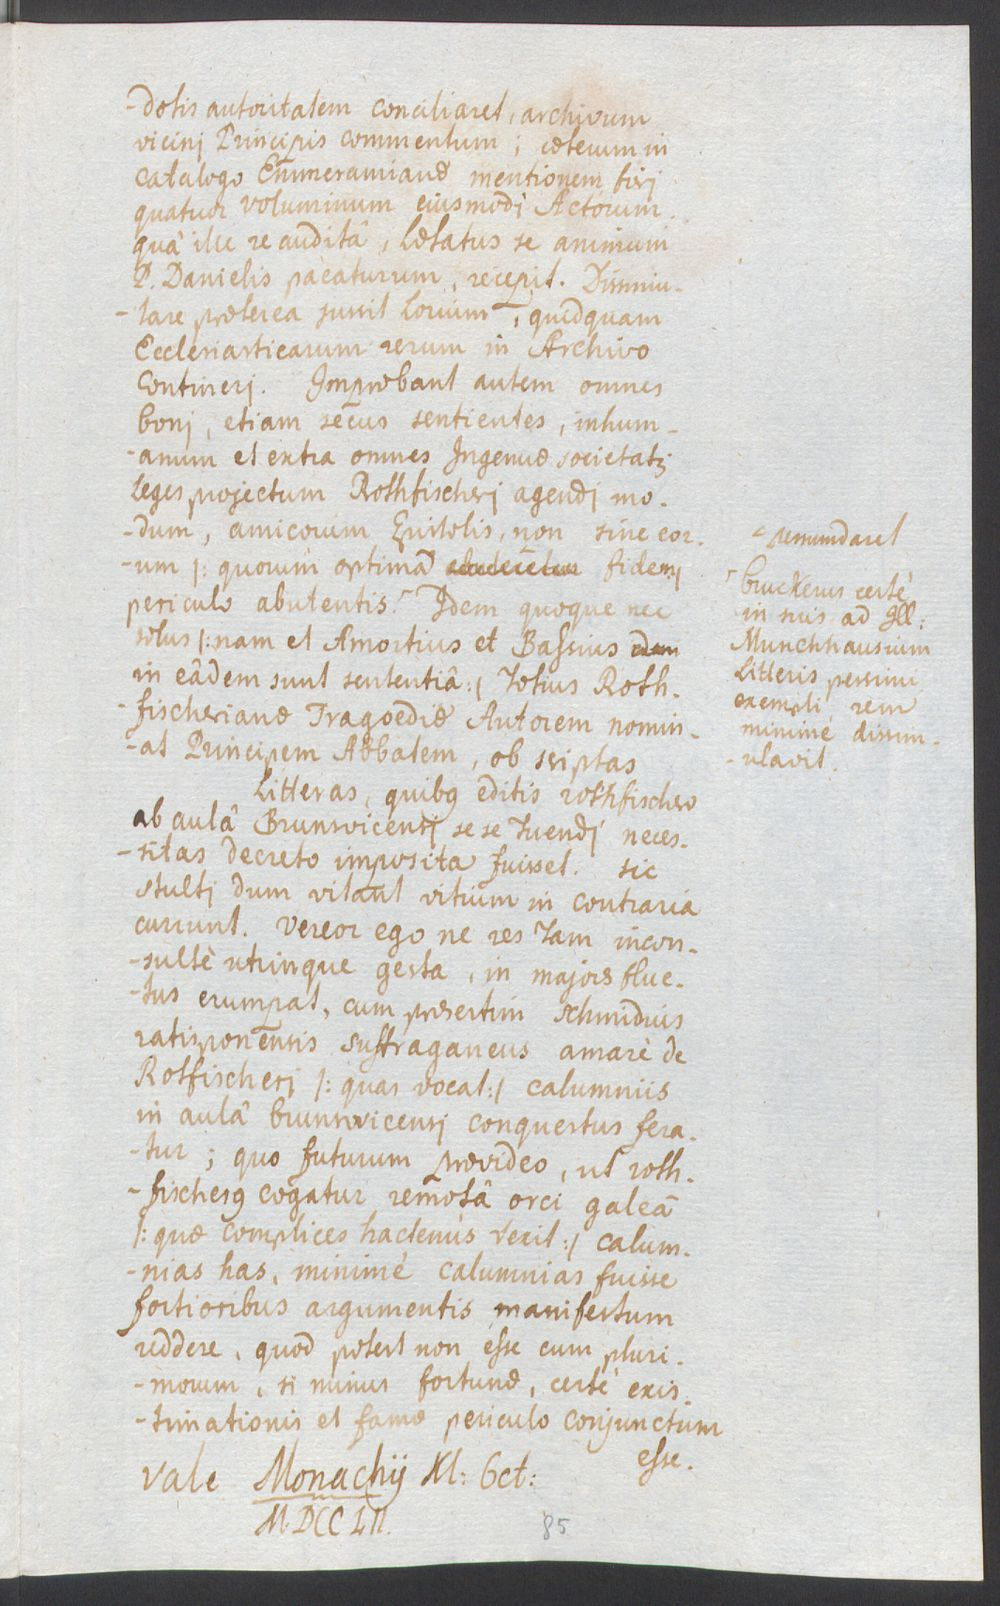 -dotis autoritatem conciliaret, archivum
vicinj Principis commentum ; cæterum in
catalogo Emmeramianæ mentionem fierj
quatuor voluminum eiusmodj Actorum.
quâ ille re auditâ, lætatus se animum
P. Danielis pacaturum, recepit. Dissimu-
-lare præterea jussit , quidquam
Ecclesiasticarum rerum in Archivo
Contineri. Improbant autem omnes
bonj, etiam secus sentientes, inhum-
-anum et extra omnes Ingenuæ societatis
Leges projectum Rothfischerj agendj mo-
-dum, amicorum Epistolis, non sine eor-
-um |: quorum optimâ fidem
periculo abutentis. Idem quoque nec
solus |: nam et Amortius et Bassius
in eâdem sunt sententiâ :| Totius Roth-
-fischerianæ Tragoediæ Autorem nomin-
-at Principem Abbatem, ob scriptas
Litteras, quibꝯ editis rothfischero
ab aulâ Brunsvicensj se se tuendj neces-
-sitas decreto imposita fuisset. sic
stultj dum vitant vitium in contraria
currunt. Vereor ego ne res tam incon-
-sultè utrinque gesta, in majores fluc-
-tus erumpat, cum præsertim Schmidius
ratisponensis suffraganeus amarè de
Rotfischerj |: quas vocat :| calumniis
in aulâ brunsvicensj conquestus fera-
-tur ; quo futurum prævideo, ut roth-
-fischerꝯ cogatur remotâ orci galeâ
|: quæ complices hactenùs texit :| calum-
-nias has, minimè calumnias fuisse
fortioribus argumentis manifestum
reddere, quod potest non esse cum pluri-
-morum, si minus fortunæ, certè exis-
-timationis et famæ periculo conjunctum
esse.
Vale Monachij XI: Oct:
M.DCCLII.
85
bruckerus certè
in suis ad Ill:
Munchhausium
Litteris pessimi
exempli rem
minimè dissim-
-ulavit.